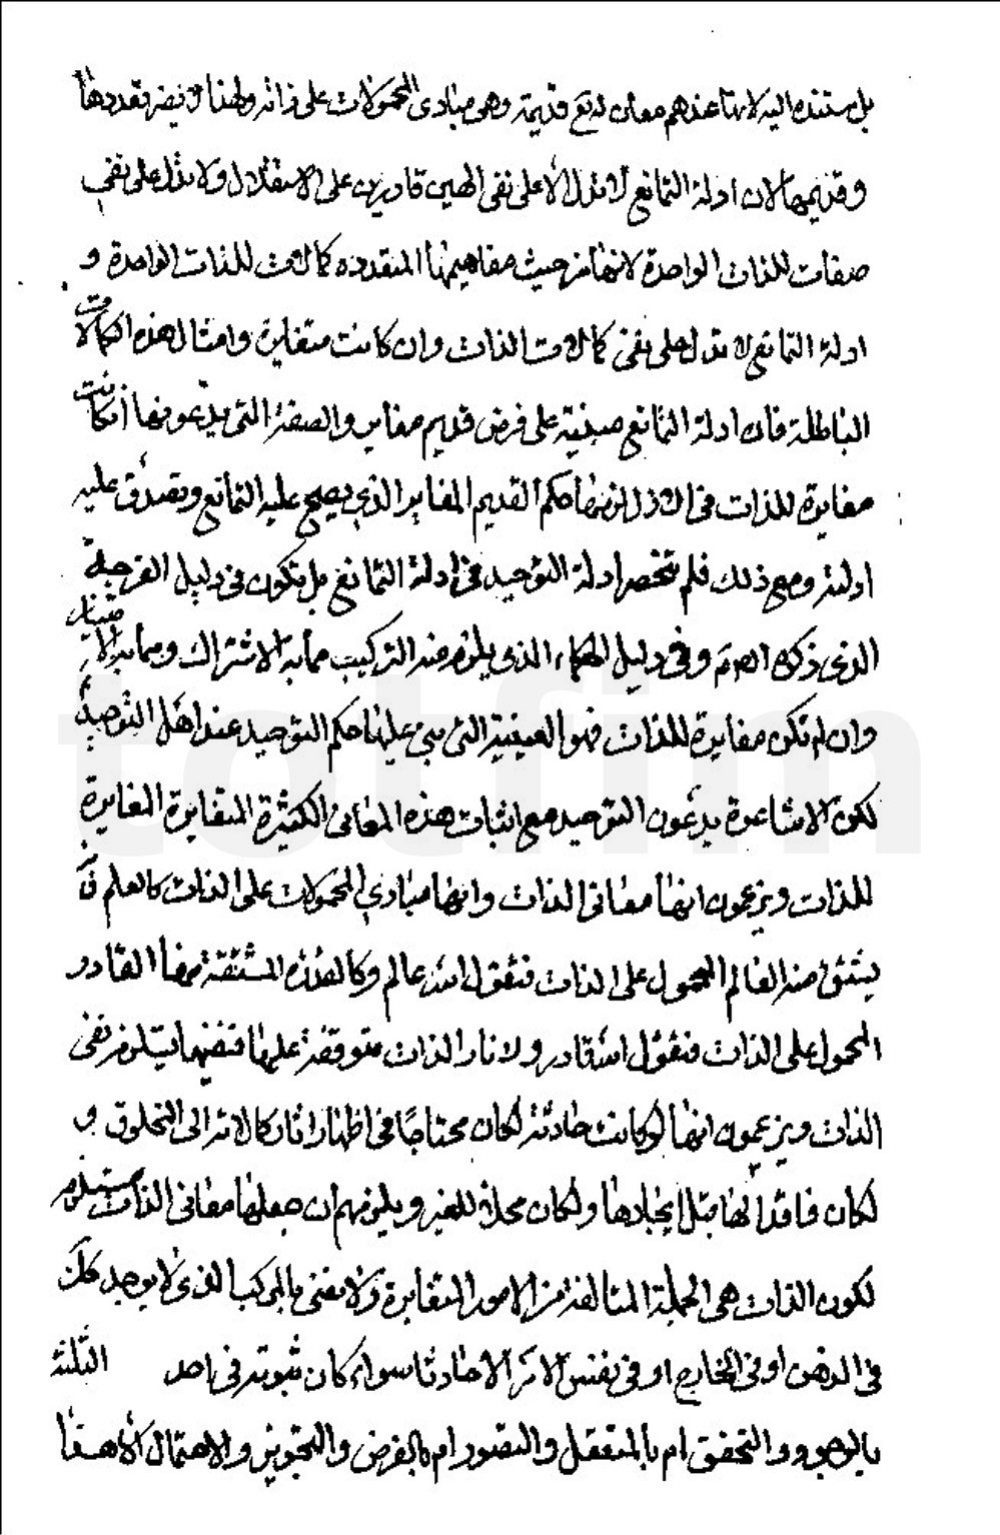 بل مستنده اليه لانها عندهم معان اربع قديمة وهي مبادى المحمولات على ذاته ولهذا لا يضر تعددها
وقديمها لان ادلة التمانع لا تدل الا على نفى الهين قادرين على الاستقلال ولا تدل على نفى
صفات للذات الواحدة لانها من حيث مفاهيمها المتعدده كمالات للذات الواحدة و
ادلة التمانع لا تدل على نفى كمالات الذات وان كانت متغايرة وامثال هذه الكمالات
الباطلة فان ادلة التمانع مبنية على فرض قديم مغاير والصفة التى يدعونها ان كانت
مغايرة للذات فى الازل لزمها حكم القديم المغاير الذى يصح عليه التمانع وتصدق عليه
ادلته ومع ذلك فلم تنحصر ادلة التوحيد فى ادلة التمانع بل تكون فى دليل الفرجة
الذى ذكره وفى دليل الحكماء الذى يلزم منه التركيب مما به الاشتراك ومما به الامتياز
وان لم تكن مغايرة للذات فهو العينية التى بنى عليها حكم التوحيد عند اهل التوحيد
لكن الاشاعرة يدعون التوحيد مع اثبات هذه المعانى الكثيرة المتغايرة المغايرة
للذات ويزعمون انها معانى الذات وانها مبادى المحمولات على الذات كالعلم فانه
يشتق منه العالم المحمول على الذات فتقول الله عالم وكالقدرة المشتقة منها القادر
المحمول على الذات فتقول الله قادر ولان اثار الذات متوقفة عليها فنفيها يستلزم نفى
الذات ويزعمون انها لو كانت حادثة لكان محتاجا فى اظهار اثاره كالاثر الى المخلوق و
لكان فاقدا لها قبل ايجادها ولكان محلا للغير ويلزمهم ان جعلها معانى الذات مستلزم
لكون الذات هى الجملة المتالفة من الامور المتغايرة ولا نعنى بالمركب الذى لا يوجد كله
فى الذهن او فى الخارج او فى نفس الامر الا حادثا سواء كان ثبوته فى احد الثلثة
بالوجود والتحقق ام بالتعقل والتصور ام بالفرض والتجويز والاحتمال الا هذا